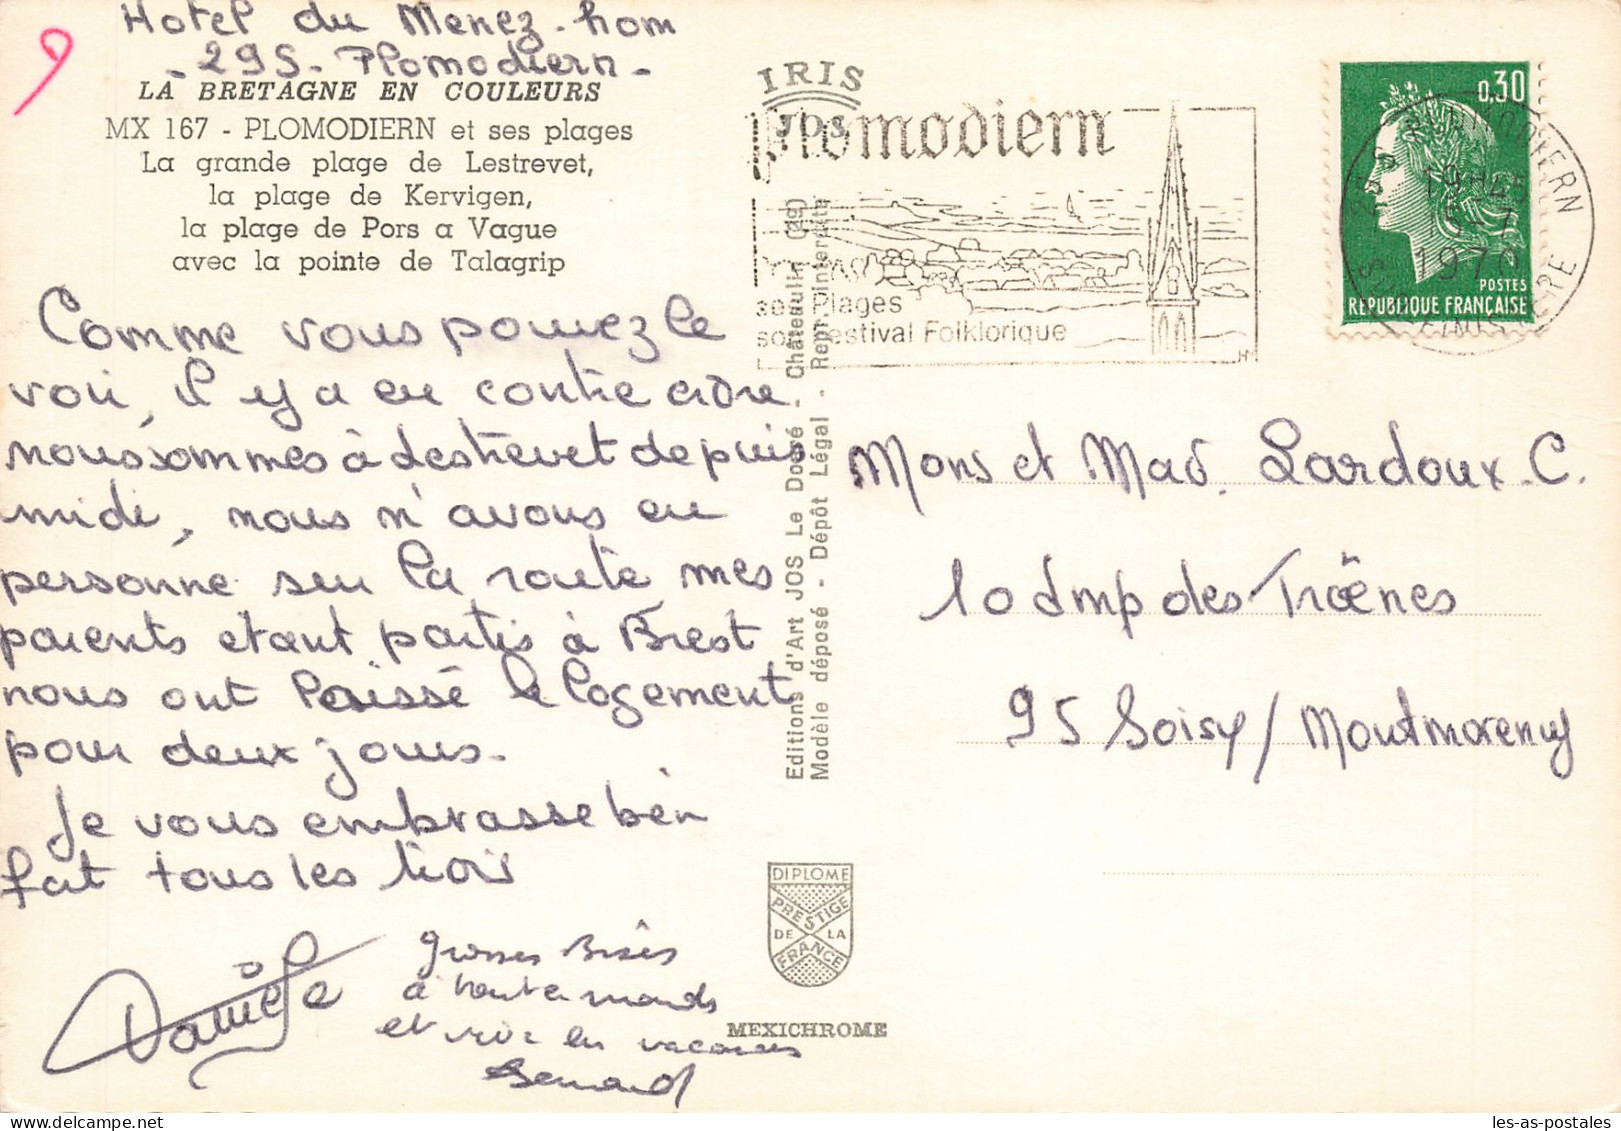 Hotel du Menez-hom
- 29S - Plomodiern -
9
LA BRETAGNE EN COULEURS
MX 167 - PLOMODIERN et ses plages
La grande plage de Lestrevet,
la plage de Kervigen,
la plage de Pors a Vague
avec la pointe de Talagrip
Comme vous pouvez le
voir, il y a eu contre ordre
nous sommes à Lestrevet depuis
midi, nous n'avons eu
personne sur la route mes
parents étant partis à Brest
nous ont laissé le logement
pour deux jours.
Je vous embrasse bien
fort tous les trois
Danièle
Grosses Bises
à tout le monde
et vive les vacances
Bernard
IRIS
JOS
Plomodiern
ses Plages
son Festival Folklorique
Editions d'Art JOS Le Doaré - Châteaulin (29)
Modèle déposé - Dépôt Légal - Repr. interdite
DIPLOME
PRESTIGE
DE LA
FRANCE
MEXICHROME
0,30
POSTES
REPUBLIQUE FRANÇAISE
PLOMODIERN
19H45
5-7
1970
FINISTERE
Mons et Mad. Lardoux. C.
10 Imp des Troënes
95 Soisy / Montmorency
les-as-postales